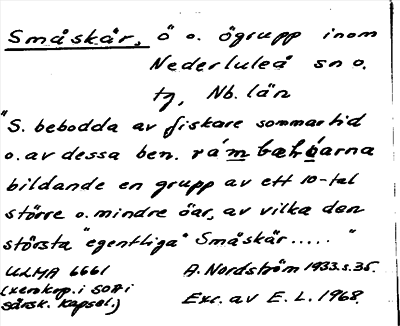 Småskär, ö o. ögrupp inom
Nederluleå sn o.
tg, Nb. län
"S. bebodda av fiskare sommartid
o. av dessa ben.
bildande en grupp av ett 10-tal
större o. mindre öar, av vilka den
största "egentliga" Småskär ..... "
ULMA 6661 A. Nordström 1933. s. 35.
(xerokop. i SOA i
särsk. kapsel.) Exc. av E. L. 1968.